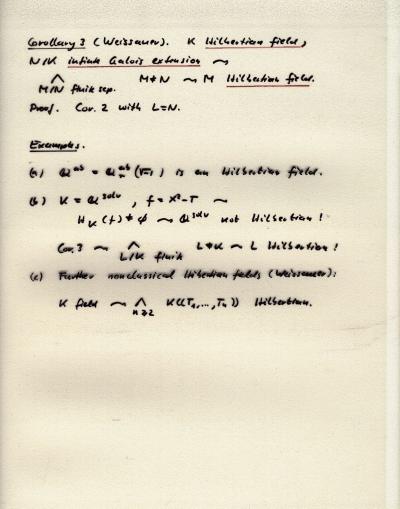 Corollary 3 (Weissauer). K Hilbertian field,
N/K infinite Galois extension ⤳
⋀ M/N finite sep. M≠N ⤳ M Hilbertian field.
Proof. Cor. 2 with L=N.
Examples.
(a) ℚ^ab = ℚ^ab(√-1) is an Hilbertian field.
(b) K = ℚ^solv, f = X²-T ⤳
H_K(f) ≠ ∅ ⤳ ℚ^solv not Hilbertian!
Cor. 3 ⤳ ⋀ L/K finite L≠K ⤳ L Hilbertian!
(c) Further nonclassical Hilbertian fields (Weissauer):
K field ⤳ ⋀ n≥2 K((T₁,...,Tₙ)) Hilbertian.